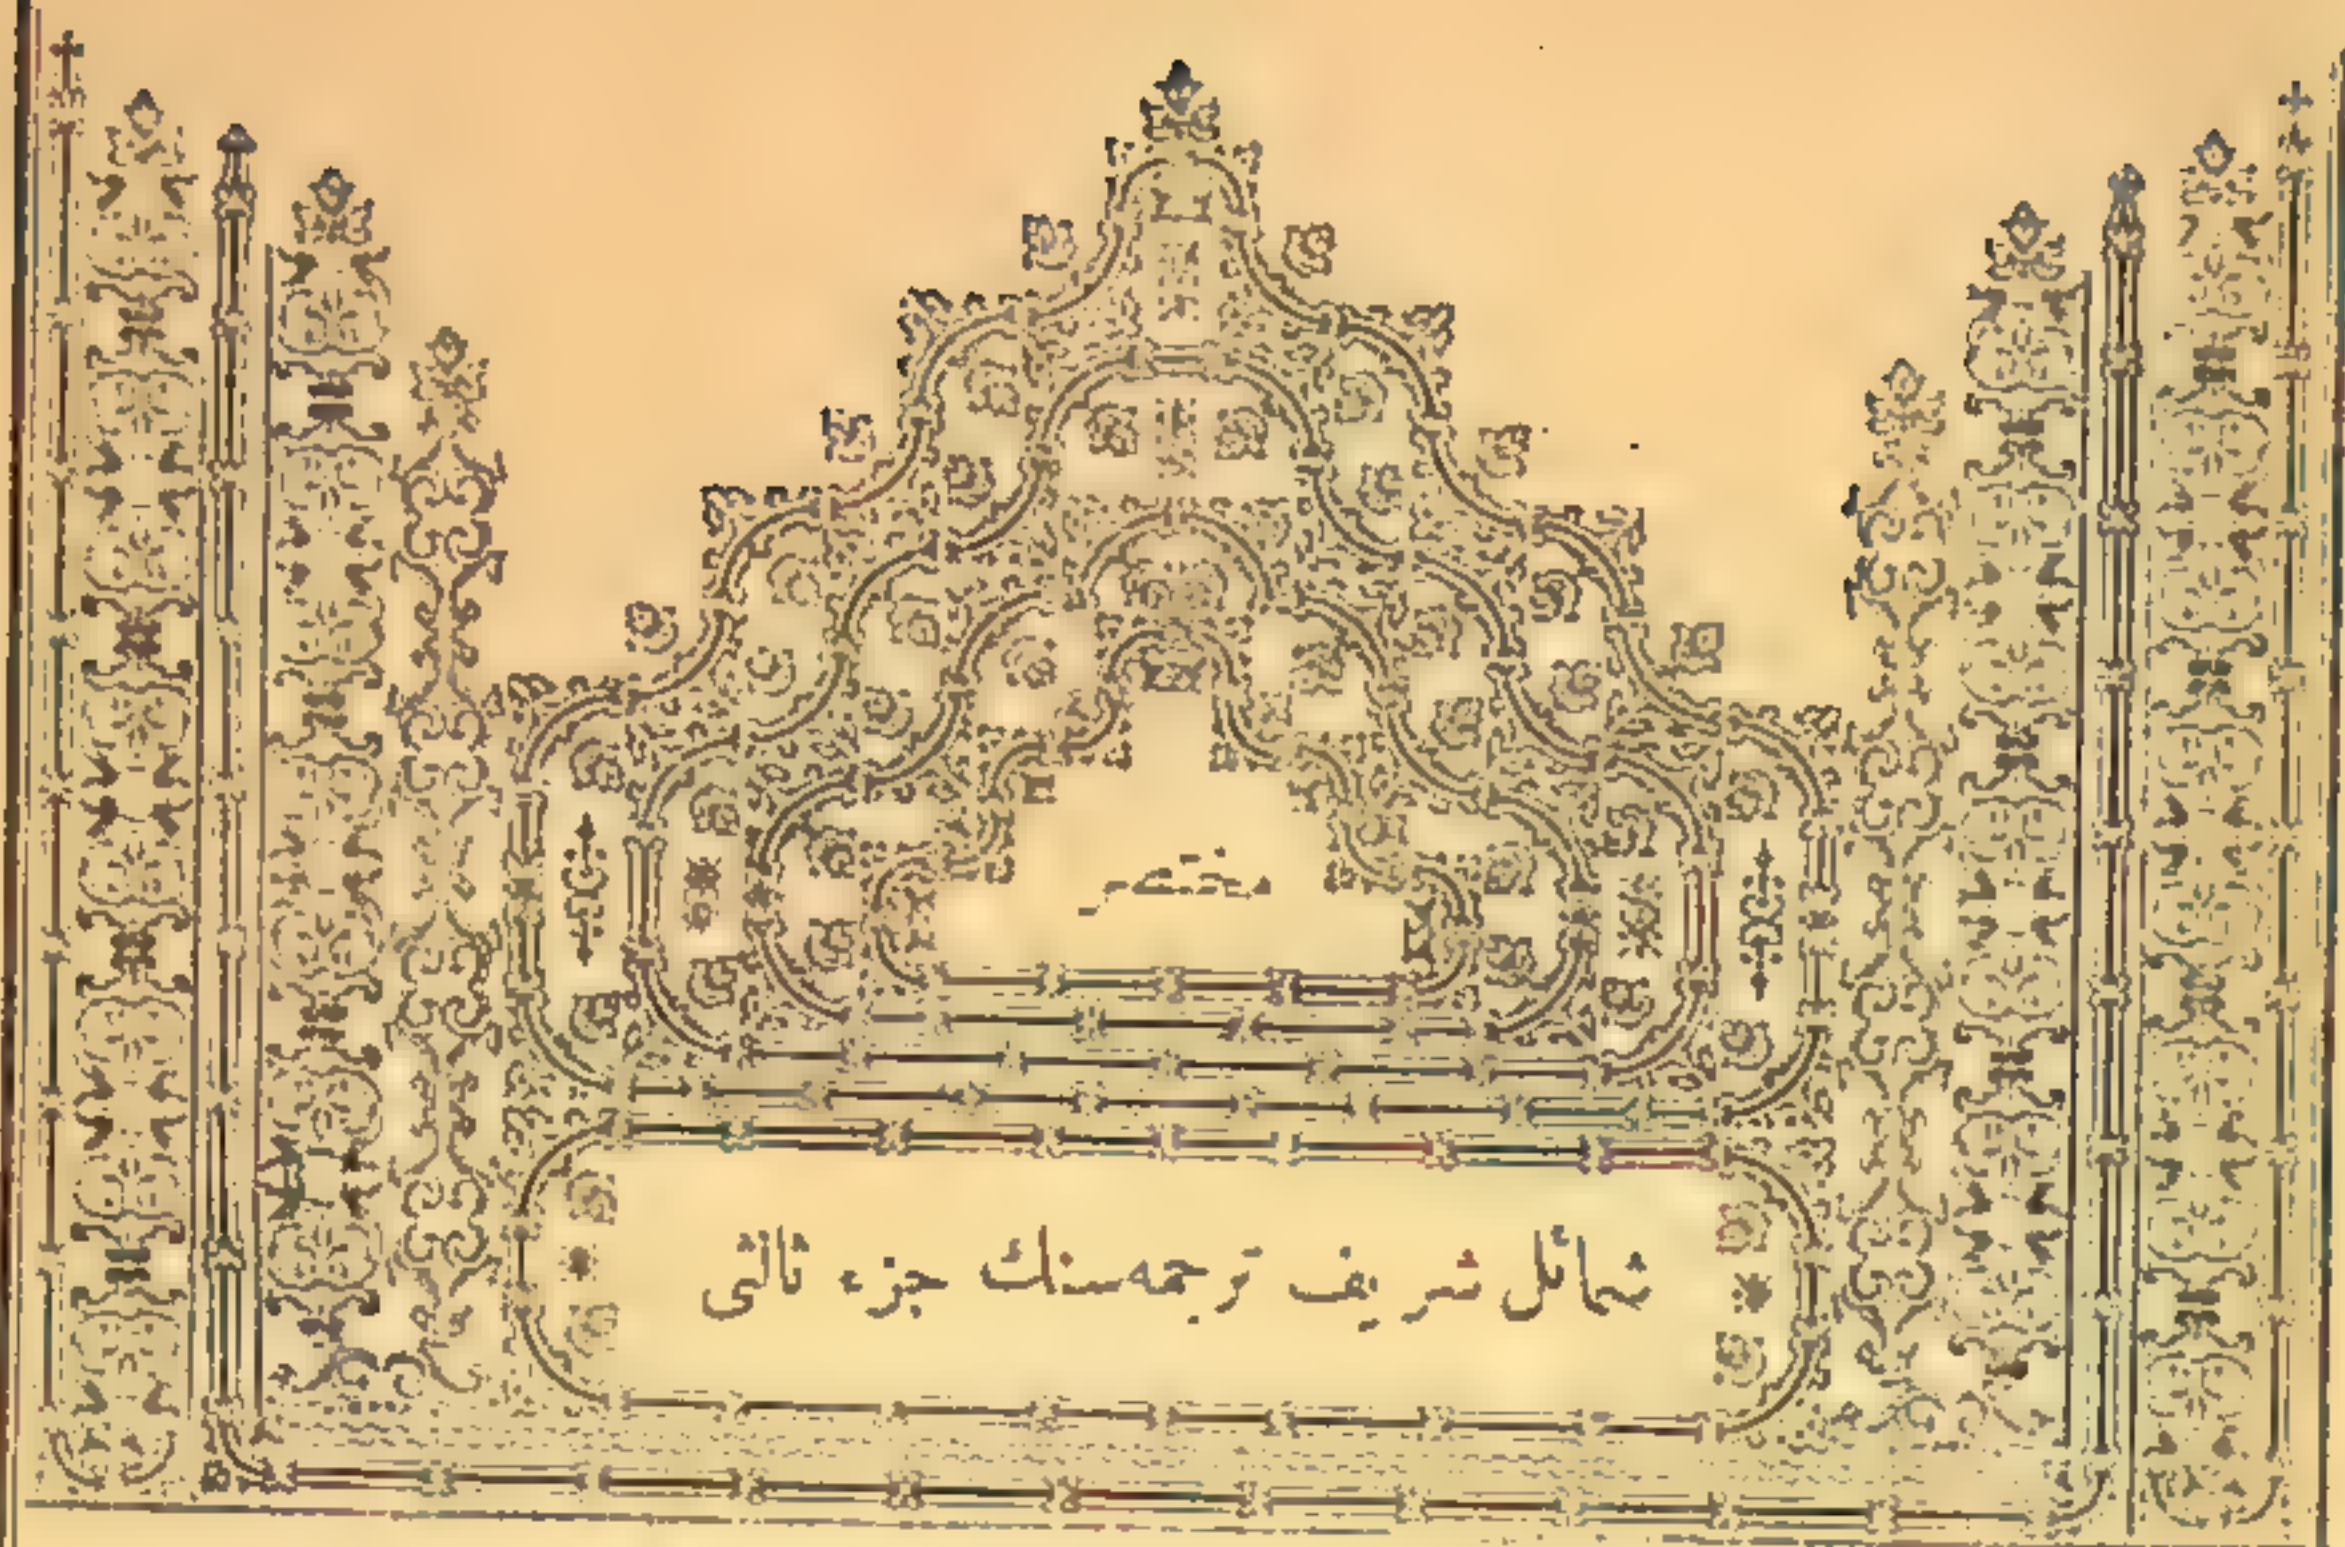 مختصر
شمائل شريف ترجمه‌سنك جزء ثالثی